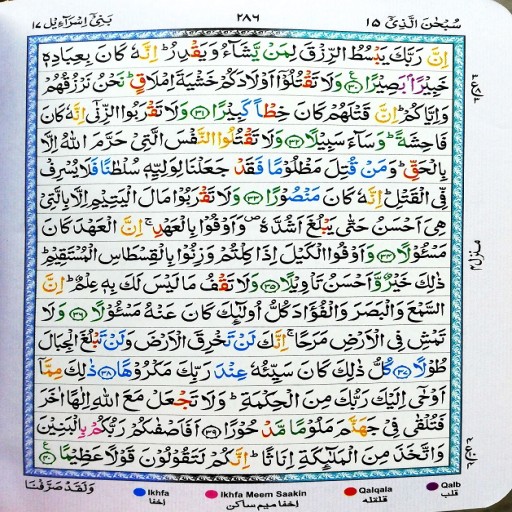 بَنِیْٓ اِسْرَآءِیْل ۱۷ ۲۸۶ سُبْحٰنَ الَّذِیْٓ ۱۵
اِنَّ رَبَّكَ یَبْسُطُ الرِّزْقَ لِمَنْ یَّشَآءُ وَیَقْدِرُ ؕ اِنَّهٗ كَانَ بِعِبَادِهٖ
خَبِیْرًۢا بَصِیْرًا ﴿۳۰﴾ وَلَا تَقْتُلُوْٓا اَوْلَادَكُمْ خَشْیَةَ اِمْلَاقٍ ؕ نَحْنُ نَرْزُقُهُمْ
وَاِیَّاكُمْ ؕ اِنَّ قَتْلَهُمْ كَانَ خِطْاً كَبِیْرًا ﴿۳۱﴾ وَلَا تَقْرَبُوا الزِّنٰۤی اِنَّهٗ كَانَ
فَاحِشَةً ؕ وَسَآءَ سَبِیْلًا ﴿۳۲﴾ وَلَا تَقْتُلُوا النَّفْسَ الَّتِیْ حَرَّمَ اللّٰهُ اِلَّا
بِالْحَقِّ ؕ وَمَنْ قُتِلَ مَظْلُوْمًا فَقَدْ جَعَلْنَا لِوَلِیِّهٖ سُلْطٰنًا فَلَا یُسْرِفْ
فِّی الْقَتْلِ ؕ اِنَّهٗ كَانَ مَنْصُوْرًا ﴿۳۳﴾ وَلَا تَقْرَبُوْا مَالَ الْیَتِیْمِ اِلَّا بِالَّتِیْ
هِیَ اَحْسَنُ حَتّٰی یَبْلُغَ اَشُدَّهٗ ۪ وَاَوْفُوْا بِالْعَهْدِ ۚ اِنَّ الْعَهْدَ كَانَ
مَسْـُٔوْلًا ﴿۳۴﴾ وَاَوْفُوا الْكَیْلَ اِذَا كِلْتُمْ وَزِنُوْا بِالْقِسْطَاسِ الْمُسْتَقِیْمِ ؕ
ذٰلِكَ خَیْرٌ وَّاَحْسَنُ تَاْوِیْلًا ﴿۳۵﴾ وَلَا تَقْفُ مَا لَیْسَ لَكَ بِهٖ عِلْمٌ ؕ اِنَّ
السَّمْعَ وَالْبَصَرَ وَالْفُؤَادَ كُلُّ اُولٰٓئِكَ كَانَ عَنْهُ مَسْـُٔوْلًا ﴿۳۶﴾ وَلَا
تَمْشِ فِی الْاَرْضِ مَرَحًا ۚ اِنَّكَ لَنْ تَخْرِقَ الْاَرْضَ وَلَنْ تَبْلُغَ الْجِبَالَ
طُوْلًا ﴿۳۷﴾ كُلُّ ذٰلِكَ كَانَ سَیِّئُهٗ عِنْدَ رَبِّكَ مَكْرُوْهًا ﴿۳۸﴾ ذٰلِكَ مِمَّاۤ
اَوْحٰۤی اِلَیْكَ رَبُّكَ مِنَ الْحِكْمَةِ ؕ وَلَا تَجْعَلْ مَعَ اللّٰهِ اِلٰهًا اٰخَرَ
فَتُلْقٰی فِیْ جَهَنَّمَ مَلُوْمًا مَّدْحُوْرًا ﴿۳۹﴾ اَفَاَصْفٰىكُمْ رَبُّكُمْ بِالْبَنِیْنَ
وَاتَّخَذَ مِنَ الْمَلٰٓئِكَةِ اِنَاثًا ؕ اِنَّكُمْ لَتَقُوْلُوْنَ قَوْلًا عَظِیْمًا ﴿۴۰﴾
وَلَقَدْ صَرَّفْنَا
Ikhfa Ikhfa Meem Saakin Qalqala Qalb
اخفا اخفا میم ساکن قلقله قلب